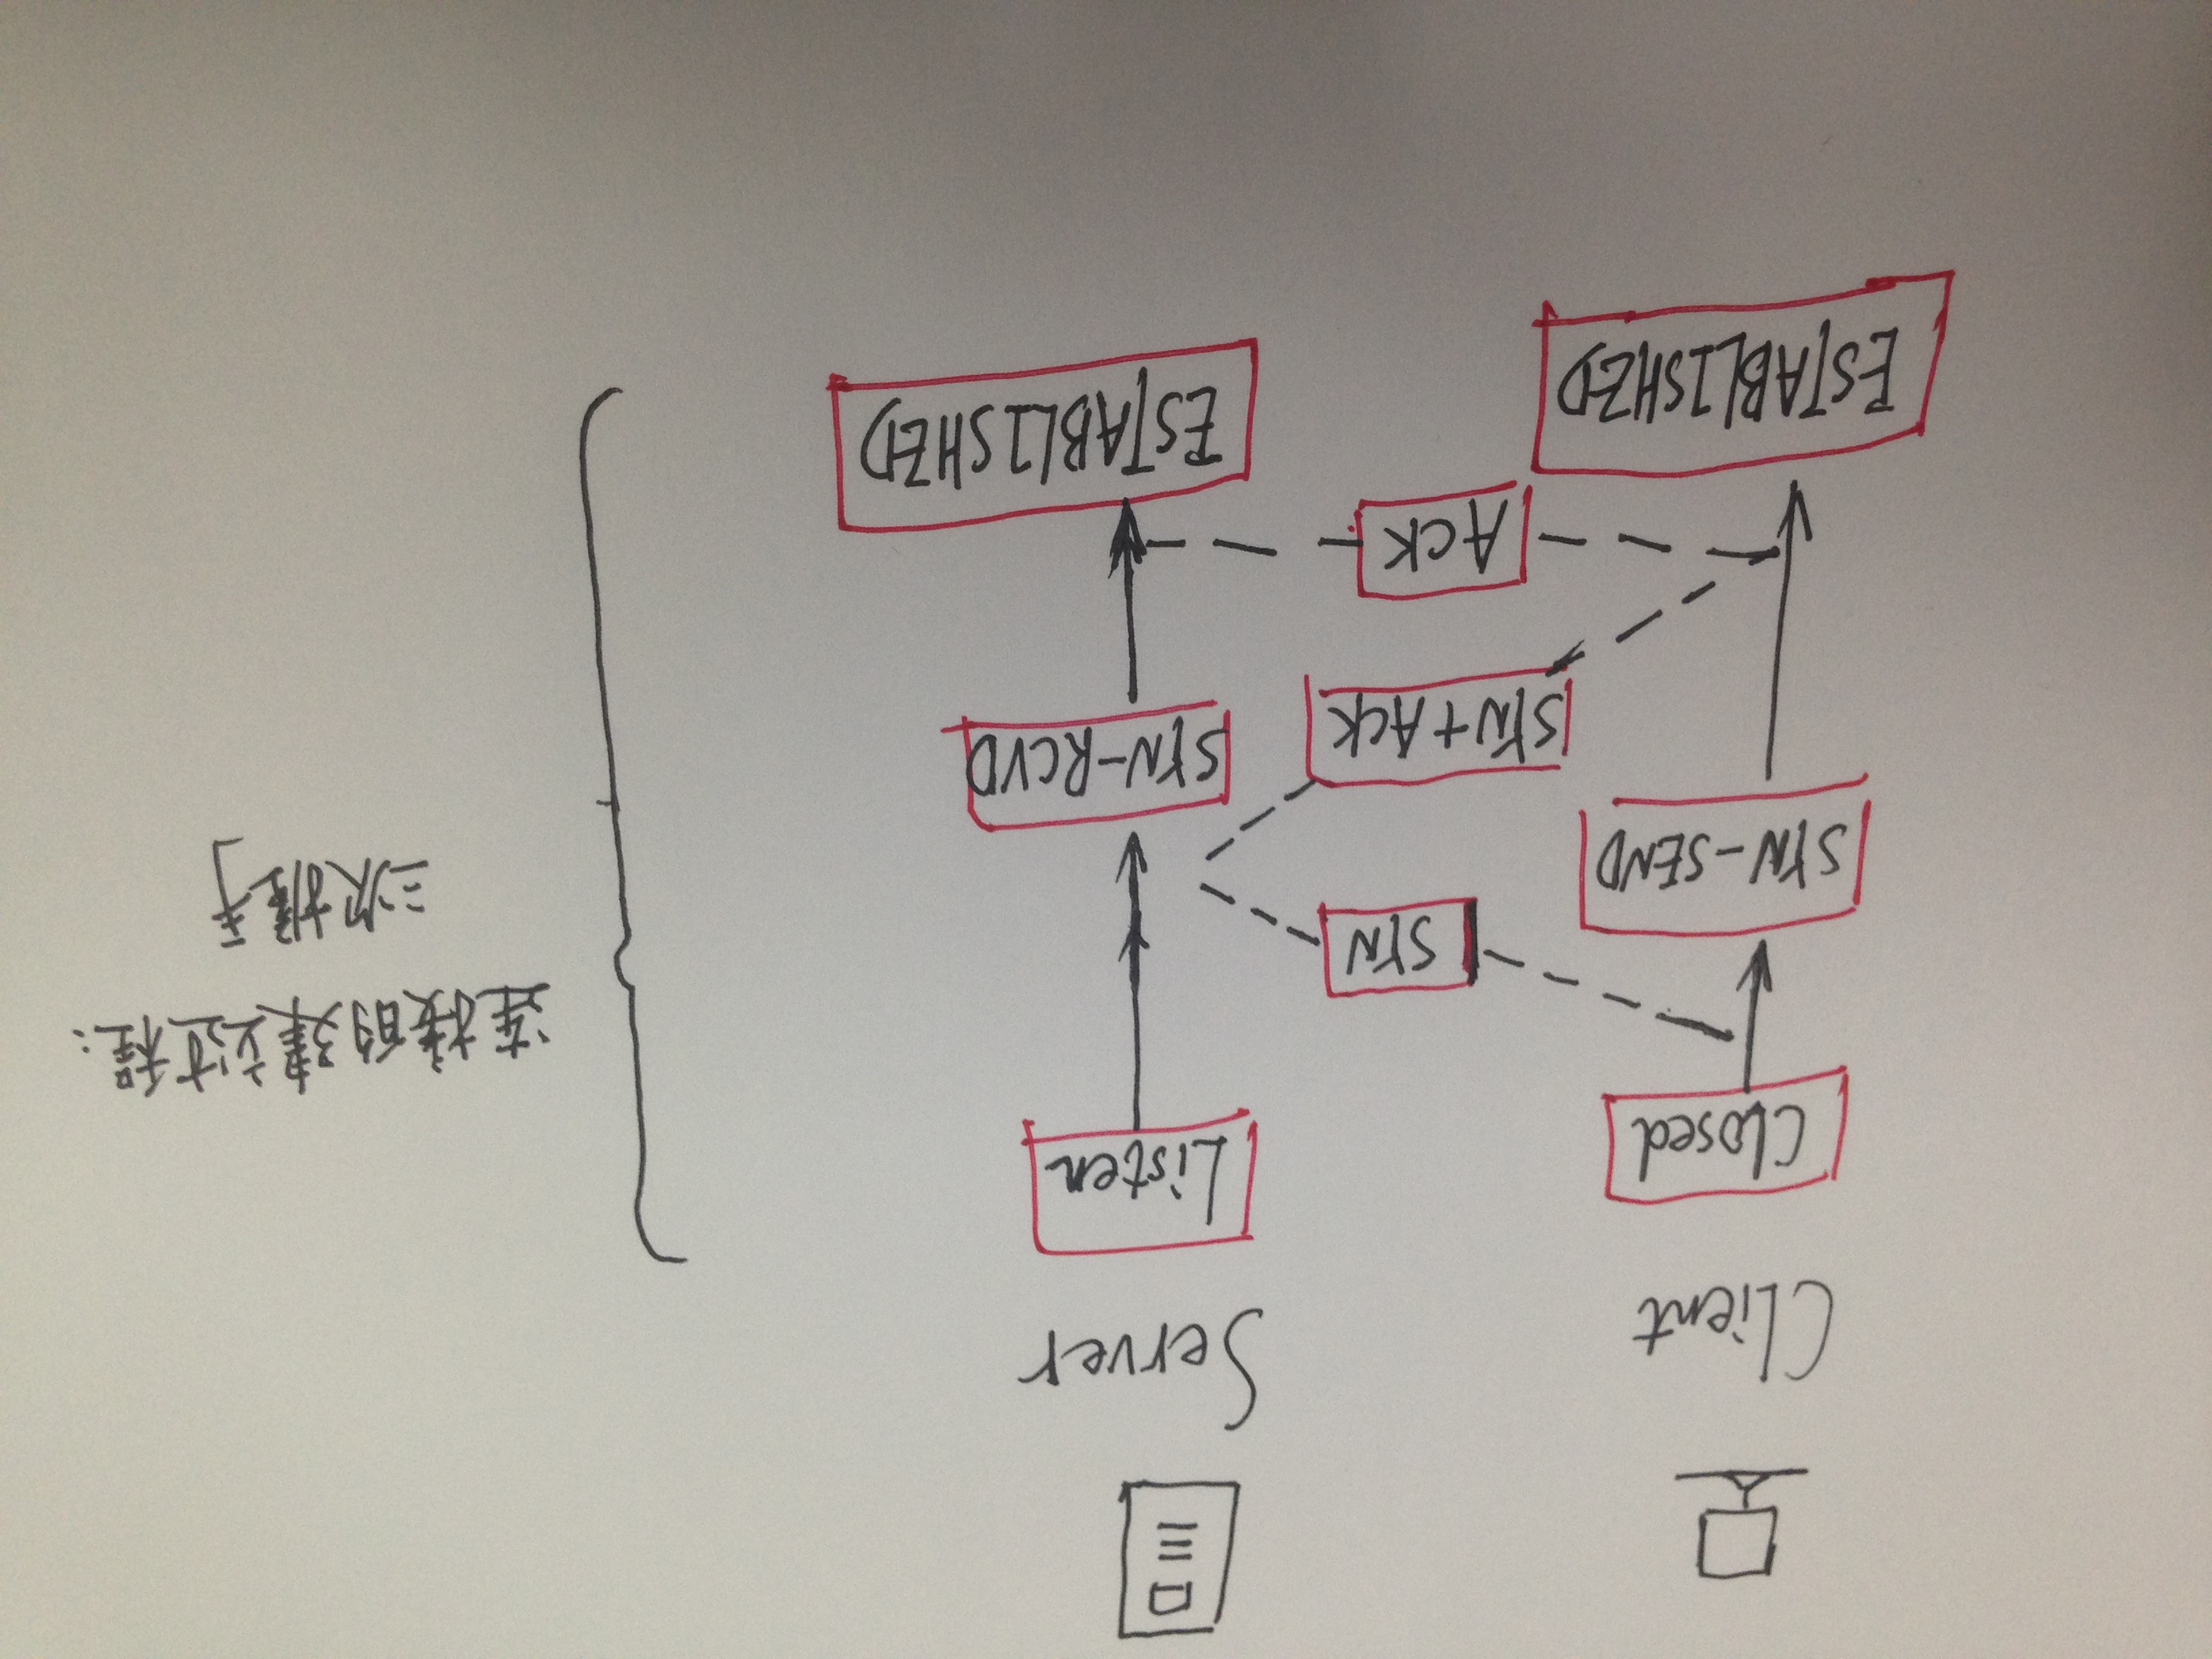 Client
Server
Closed
Listen
SYN
SYN-SEND
SYN-RCVD
SYN+ACK
ACK
ESTABLISHZD
ESTABLISHZD
连接的建立过程:
三次推手